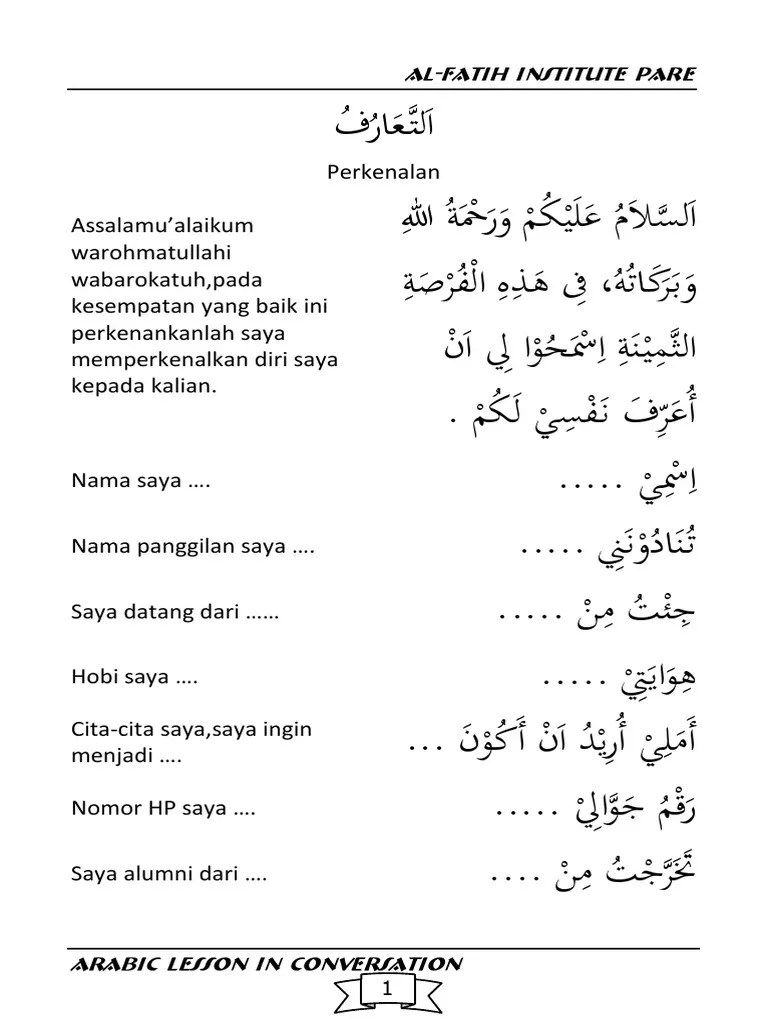 AL-FATIH INSTITUTE PARE
اَلتَّعَارُفُ
Perkenalan
Assalamu’alaikum
warohmatullahi
wabarokatuh,pada
kesempatan yang baik ini
perkenankanlah saya
memperkenalkan diri saya
kepada kalian.
اَلسَّلاَمُ عَلَيْكُمْ وَرَحْمَةُ اللهِ
وَبَرَكَاتُهُ، فِى هَذِهِ الْفُرْصَةِ
الثَّمِيْنَةِ اِسْمَحُوْا لِي اَنْ
أُعَرِّفَ نَفْسِيْ لَكُمْ .
Nama saya ….
اِسْمِيْ .....
Nama panggilan saya ….
تُنَادُوْنَنِي .....
Saya datang dari ……
جِئْتُ مِنْ .....
Hobi saya ….
هِوَايَتِيْ .....
Cita-cita saya,saya ingin
menjadi ….
أَمَلِيْ أُرِيْدُ اَنْ أَكُوْنَ ...
Nomor HP saya ….
رَقْمُ جَوَّالِيْ .....
Saya alumni dari ….
تَخَرَّجْتُ مِنْ ....
ARABIC LESSON IN CONVERSATION
1